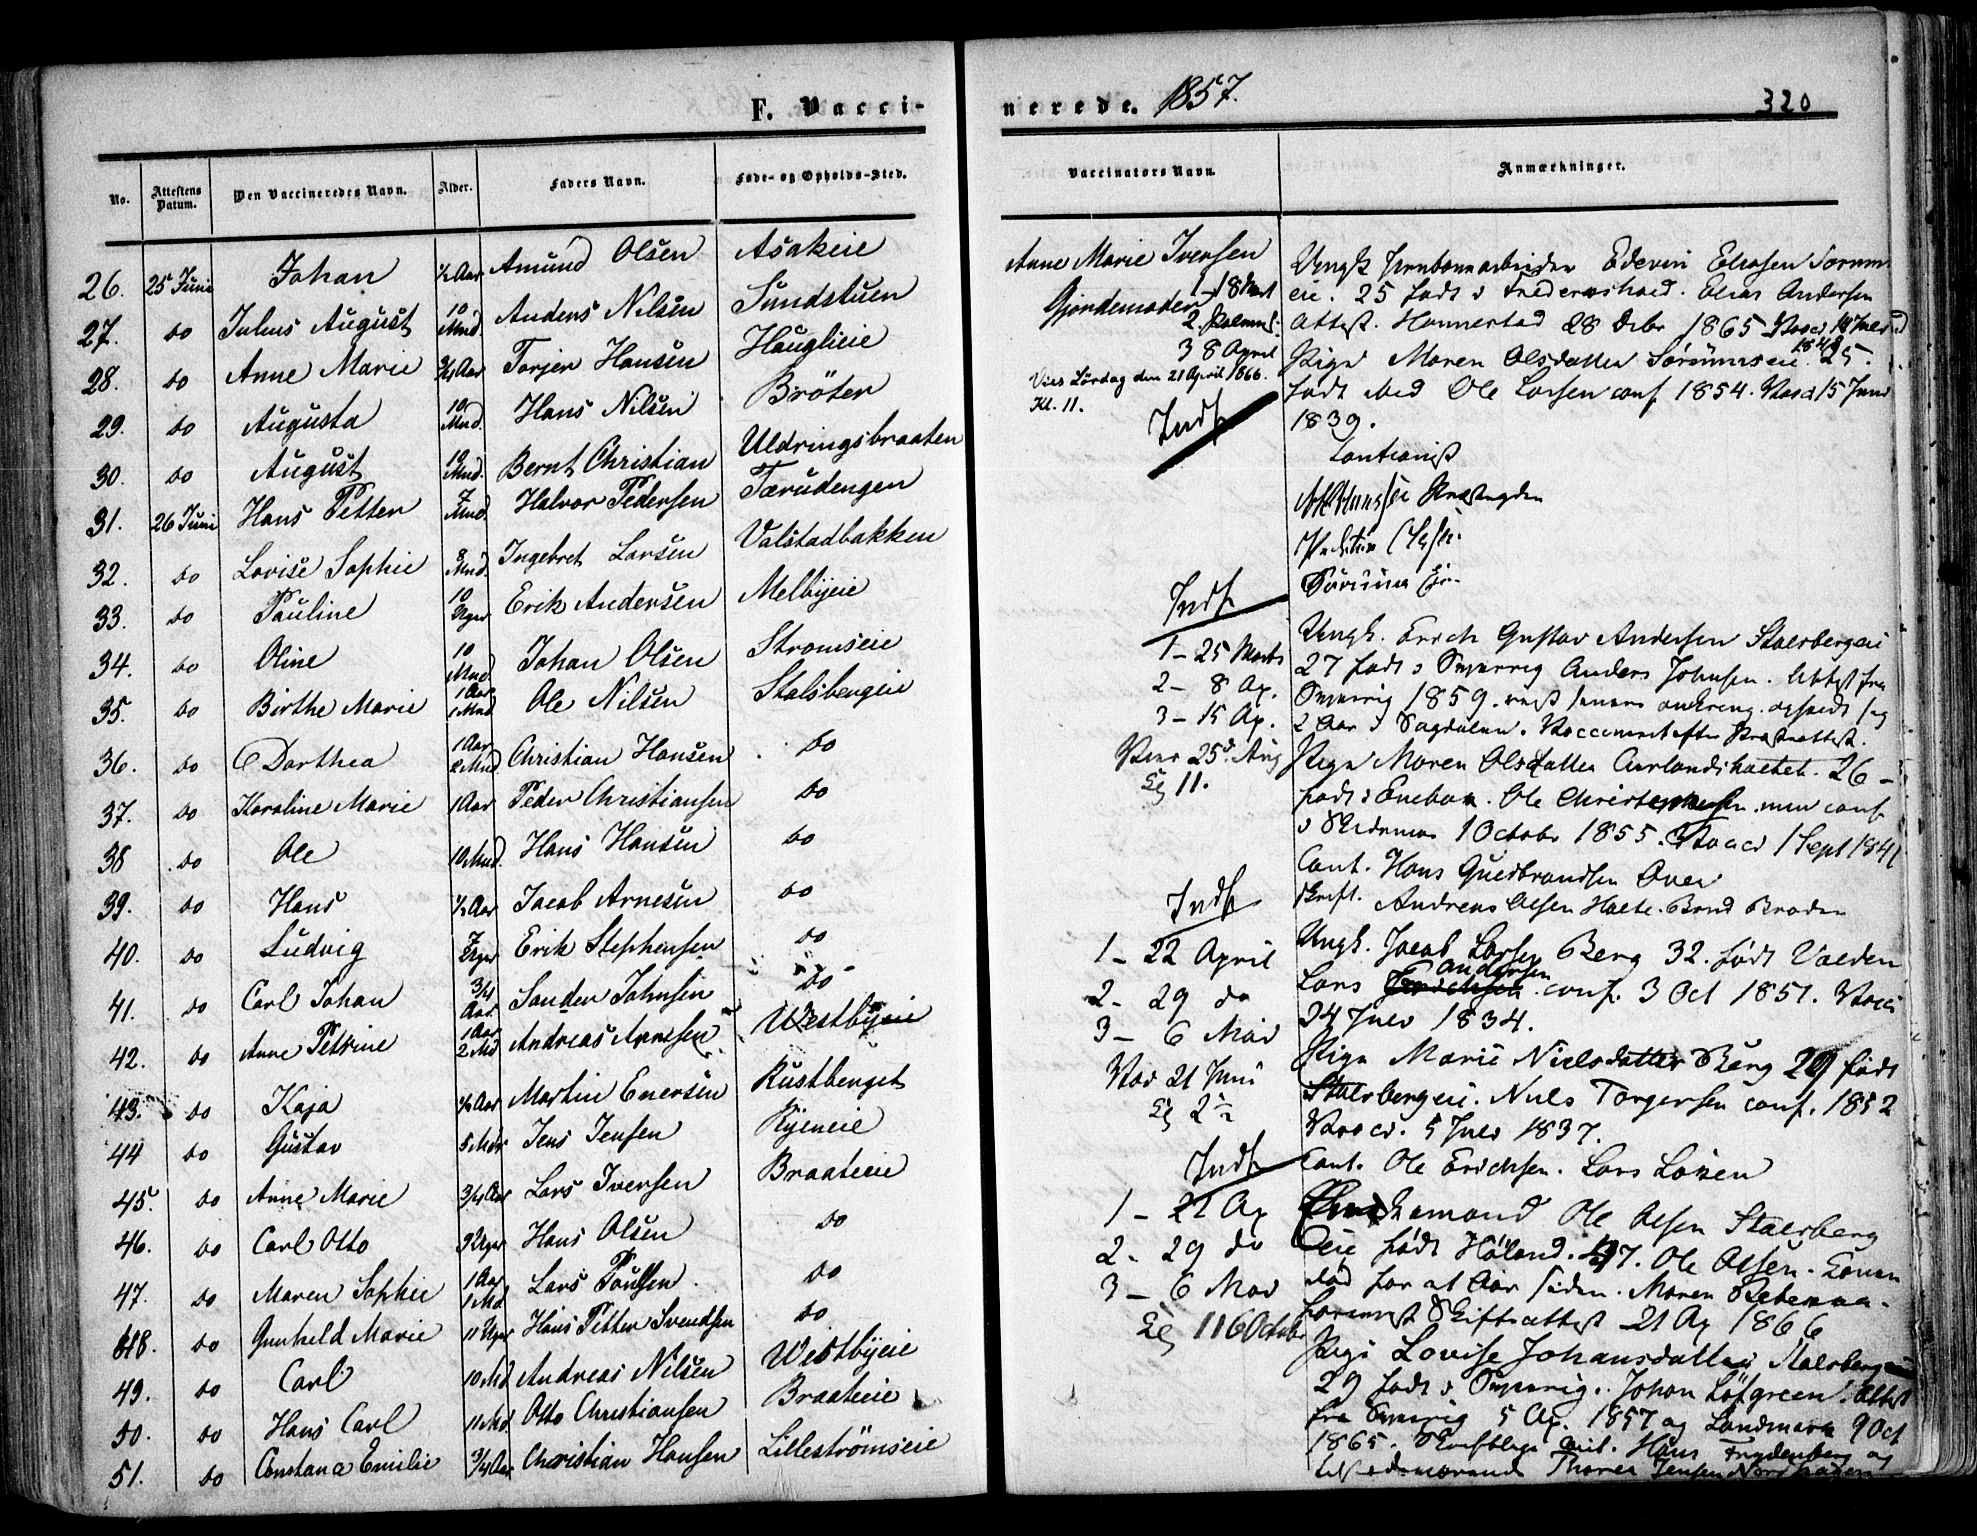 F. Vacci-
No. Attestens Datum. Den Vaccineredes Navn. Alder. Faders Navn. Føde- og Opholds-Sted.
26. 25 Juni Johan ½ Aar Amund Olsen Asakeie
27. do Julius August 10 Mnd. Anders Nilsen Sundstuen
28. do Anne Marie ¾ Aar Torjer Hansen Hauglieie
29. do Augusta 10 Mnd. Hans Nilsen Bröter
30. do August 10 Mnd. Bernt Christian Uldringsbraaten
31. 26 Juni Hans Petter 7 Mnd. Halvor Pedersen Tærudengen
32. do Lovise Sophie 8 Mnd. Ingebret Larsen Valstadbakken
33. do Pauline 10 Uger Erik Andersen Melbyeie
34. do Oline 10 Mnd Johan Olsen Stromseie
35. do Birthe Marie 1 Aar 1 Mnd Ole Nilsen Stalsbergeie
36. do Dorthea 1 Aar 2 Mnd Christian Hansen do
37. do Karoline Marie 1 Aar Peder Christiansen do
38 do Ole 10 Mnd. Hans Hansen do
39. do Hans ½ Aar Jacob Arnesen do
40. do Ludvig 7 Uger Erik Stephensen do
41. do Carl Johan 3/4 Aar Sander Johnsen do
42. do Anne Petrine 1 Aar 2 Md Andreas Arnesen Westbyeie
43. do Kaja ½ Aar Martin Enersen Rustberget
44 do Gustav 5 Mdr Jens Jensen Ryeneie
45. do Anne Marie 3/4 Aar Lars Iversen Braateie
46. do Carl Otto 9 Uger Hans Olsen do
47. do Maren Sophie 1 Aar 1 Md Lars Poulsen do
48. do Gunhild Marie 11 Uger Hans Petter Svendsen do
49. do Carl 10 Md Andreas Nilsen Westbyeie
50. do Hans Carl 11 Md. Otto Christiansen Braateie
51. do Constance Emilie 3/4 Aar Christian Hansen Lilleströmseie
nerede. 1857.
320
Vaccinators Navn. Anmærkninger.
Anne Marie Iversen
Gjordemoder
1 - 18 Mart
3 8 April
Vies Lördag den 21 April 1866.
Kl. 11.
Indf
Ungk Edevin Eliasen
eie. 25 født i Fredrikshald. Elias Andersen
Attest. 28 Debr 1865
Pige Maren Olsdatter 25.
født Ole Larsen conf 1854. Vacc 15 Juni
1839.
Indf
1 - 25 Marts
2 - 8 Ap.
3 - 15 Ap.
25 Aug
Kl 11.
Ungk. Erich Gustav Andersen Stalsbergeie
27 født i Sverrig Anders Johnsen. Attest fra
Sverrig 1859.
2 Aar i Sagdalen.
Pige Maren Olsdatter 26 -
født i Enebak. Ole Christophersen. conf
i Skedsmo 1 Octobr 1855. Vacc 1 Sept 1841
Caut. Hans Guldbrandsen
Andreas Olsen
Indf
1 - 22 April
2 - 29 do
3 - 6 Mai
21 Juni
Kl 2½
Ungk. Jacob Larsen Berg 32. født
Lars Andersen conf. 3 Oct 1851. Vacc
24 Juli 1834.
Pige Marie Nielsdatter Berg 29 født
Stalsbergeie. Niels Torgersen conf. 1852
Vacc. 5 Juli 1837.
Caut. Ole Erichsen. Lars Larsen
Indf
1 - 22 Ap
2 - 29 do
3 - 6 Mai
Kl 11 6 Octobr
Enkemand Ole Olsen Stalsberg
eie født Høland. 47. Ole Olsen. Konen
død for et Aar siden. Maren
Skifteattest 21 Ap 1866
Pige Lovise Johansdatter Stalsbergeie
29 født i Sverrig. Johan Löfgreen. Attest
fra Sverrig 5 Ap. 1857 og 9 Oct
1865. Hans Frydenberg og
Thorer Jensen